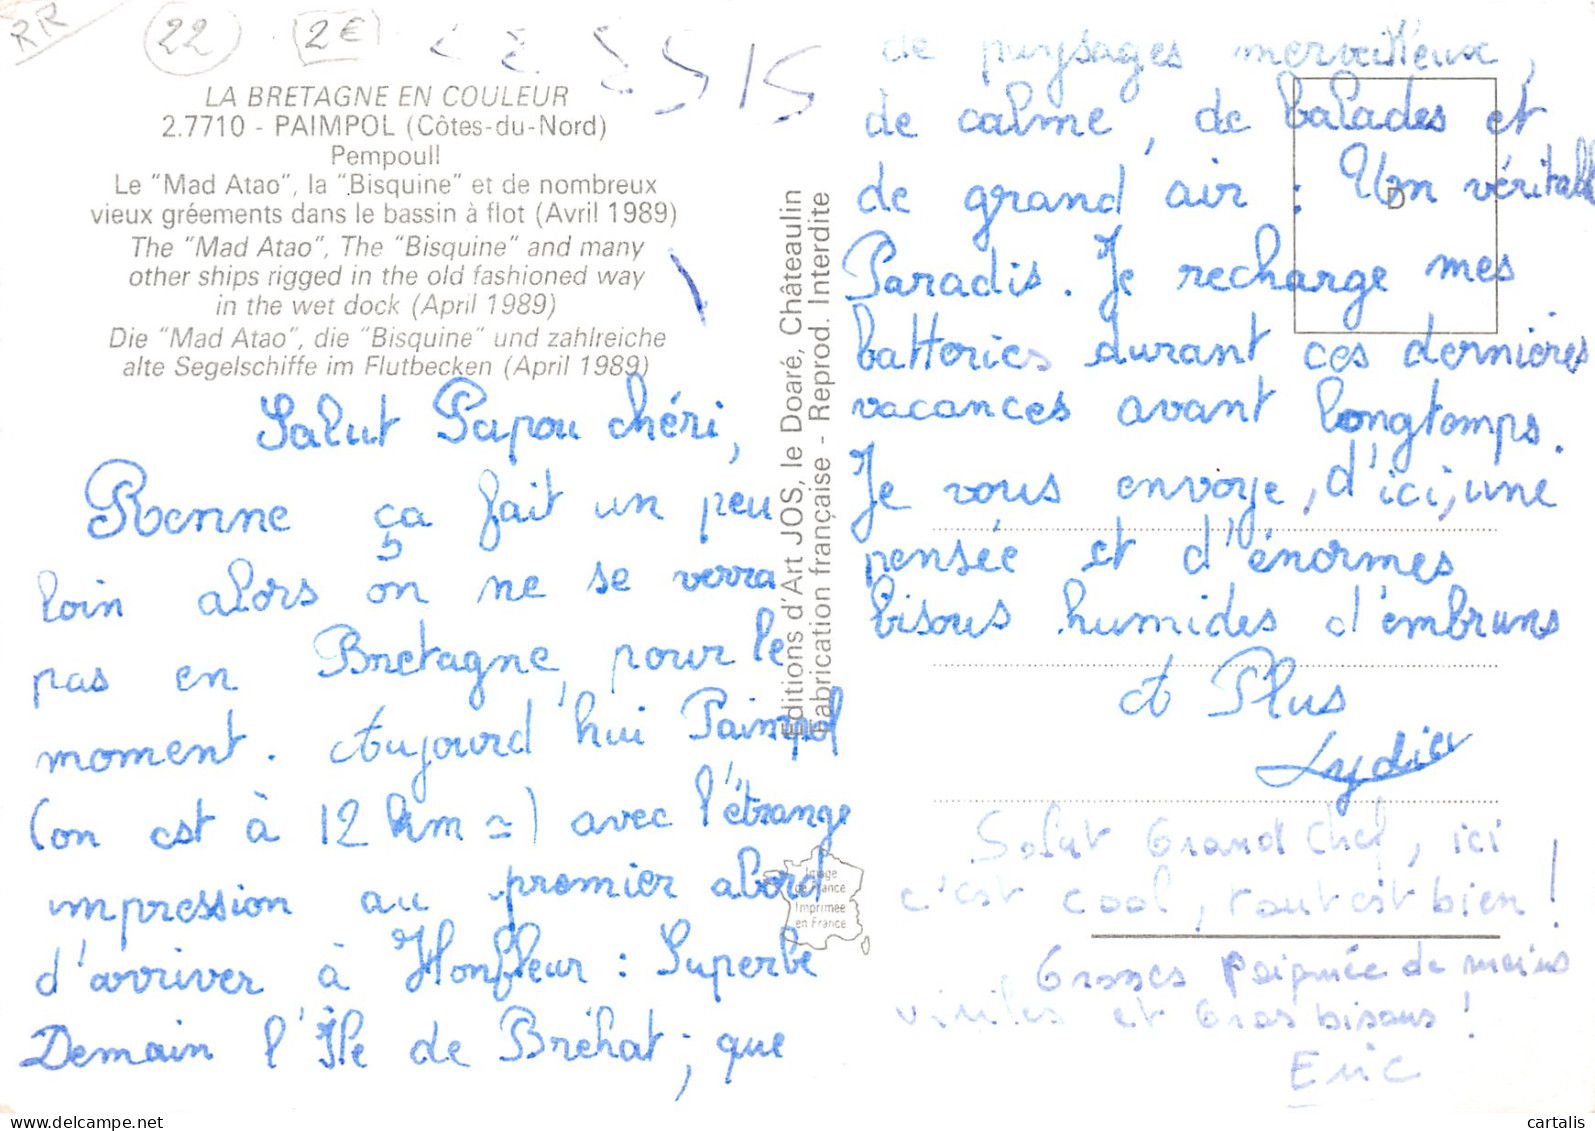 RR
22
2€
LA BRETAGNE EN COULEUR
2.7710 - PAIMPOL (Côtes-du-Nord)
Pempoull
Le "Mad Atao", la "Bisquine" et de nombreux
vieux gréements dans le bassin à flot (Avril 1989)
The "Mad Atao", The "Bisquine" and many
other ships rigged in the old fashioned way
in the wet dock (April 1989)
Die "Mad Atao", die "Bisquine" und zahlreiche
alte Segelschiffe im Flutbecken (April 1989)
Salut Papou chéri,
Renne ça fait un peu
loin alors on ne se verra
pas en Bretagne, pour le
moment. Aujourd'hui Paimpol
(on est à 12 km ≃) avec l'étrange
impression au premier abord
d'arriver à Honfleur : Superbe
Demain l'Île de Bréhat ; que
Editions d'Art JOS, le Doaré, Châteaulin
Fabrication française - Reprod. Interdite
Image
de France
Imprimée
en France
D
de paysages merveilleux,
de calme, de balades et
de grand air : Un véritable
Paradis. Je recharge mes
batteries durant ces dernières
vacances avant longtemps.
Je vous envoye, d'ici, une
pensée et d'énormes
bisous humides d'embruns
A Plus
Lydia
Salut Grand Chef, ici
c'est cool, tout est bien !
Grosses Poignée de mains
viriles et Gros bisous !
Eric
cartalis